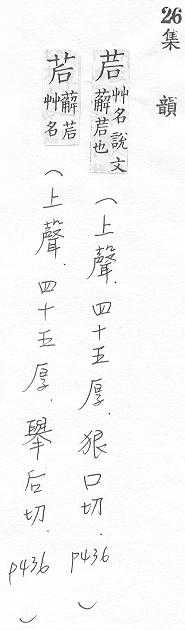 26 集韻
茩 艸名說文薢茩也(上聲.四十五厚.狠口切.p436)
茩 薢茩艸名(上聲.四十五厚.舉后切.p436)